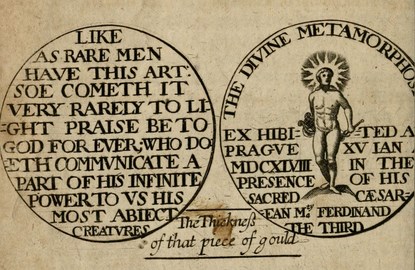 LIKE
AS RARE MEN
HAVE THIS ART:
SOE COMETH IT
VERY RARELY TO LI-
-GHT PRAISE BE TO
GOD FOR EVER; WHO DO-
-ETH COMMVNICATE A
PART OF HIS INFINITE
POWER TO VS HIS
MOST ABIECT
CREATVRES
THE DIVINE METAMORPHOS
EX HIBI- -TED A
PRAGVE XV IAN
MDCXLVIII IN THE
PRESENCE OF HIS
SACRED CÆSAR-
-EAN Mty FERDINAND
THE THIRD
The Thickness
of that piece of gould